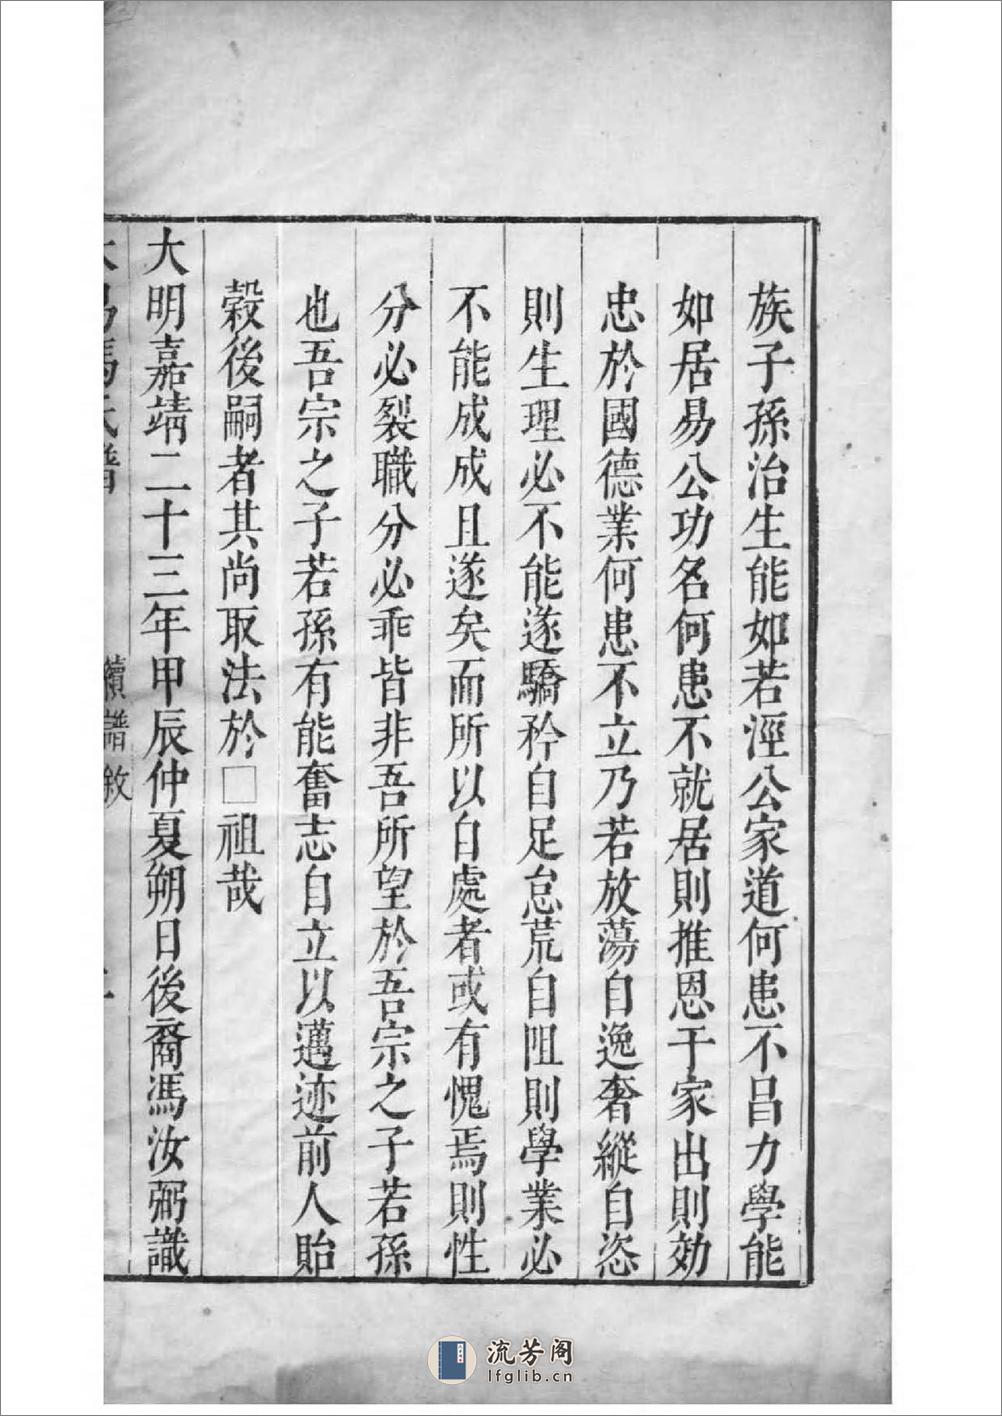 族子孫治生能如若涇公家道何患不昌力學能
如居易公功名何患不就居則推恩于家出則効
忠於國德業何患不立乃若放蕩自逸奢縱自恣
則生理必不能遂驕矜自足怠荒自阻則學業必
不能成成且遂矣而所以自處者或有愧焉則性
分必裂職分必乖皆非吾所望於吾宗之子若孫
也吾宗之子若孫有能奮志自立以邁迹前人貽
穀後嗣者其尚取法於□祖哉
大明嘉靖二十三年甲辰仲夏朔日後裔馮汝弼識
馮氏譜
續譜敘
流芳阁
lfglib.cn